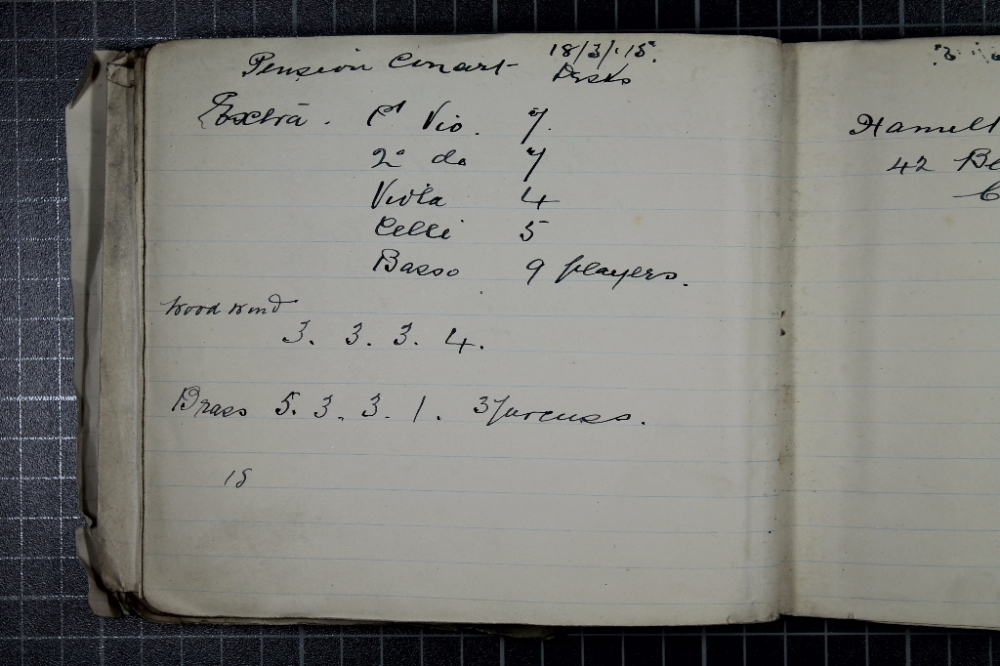 Pension Concert 18/3/15.
Desks
Extra. 1st Vio. 7.
2o do 7
Viola 4
Celli 5
Basso 9 players.
Wood Wind
3. 3. 3. 4.
Brass 5. 3. 3. 1. 3
18
Hamelt
42